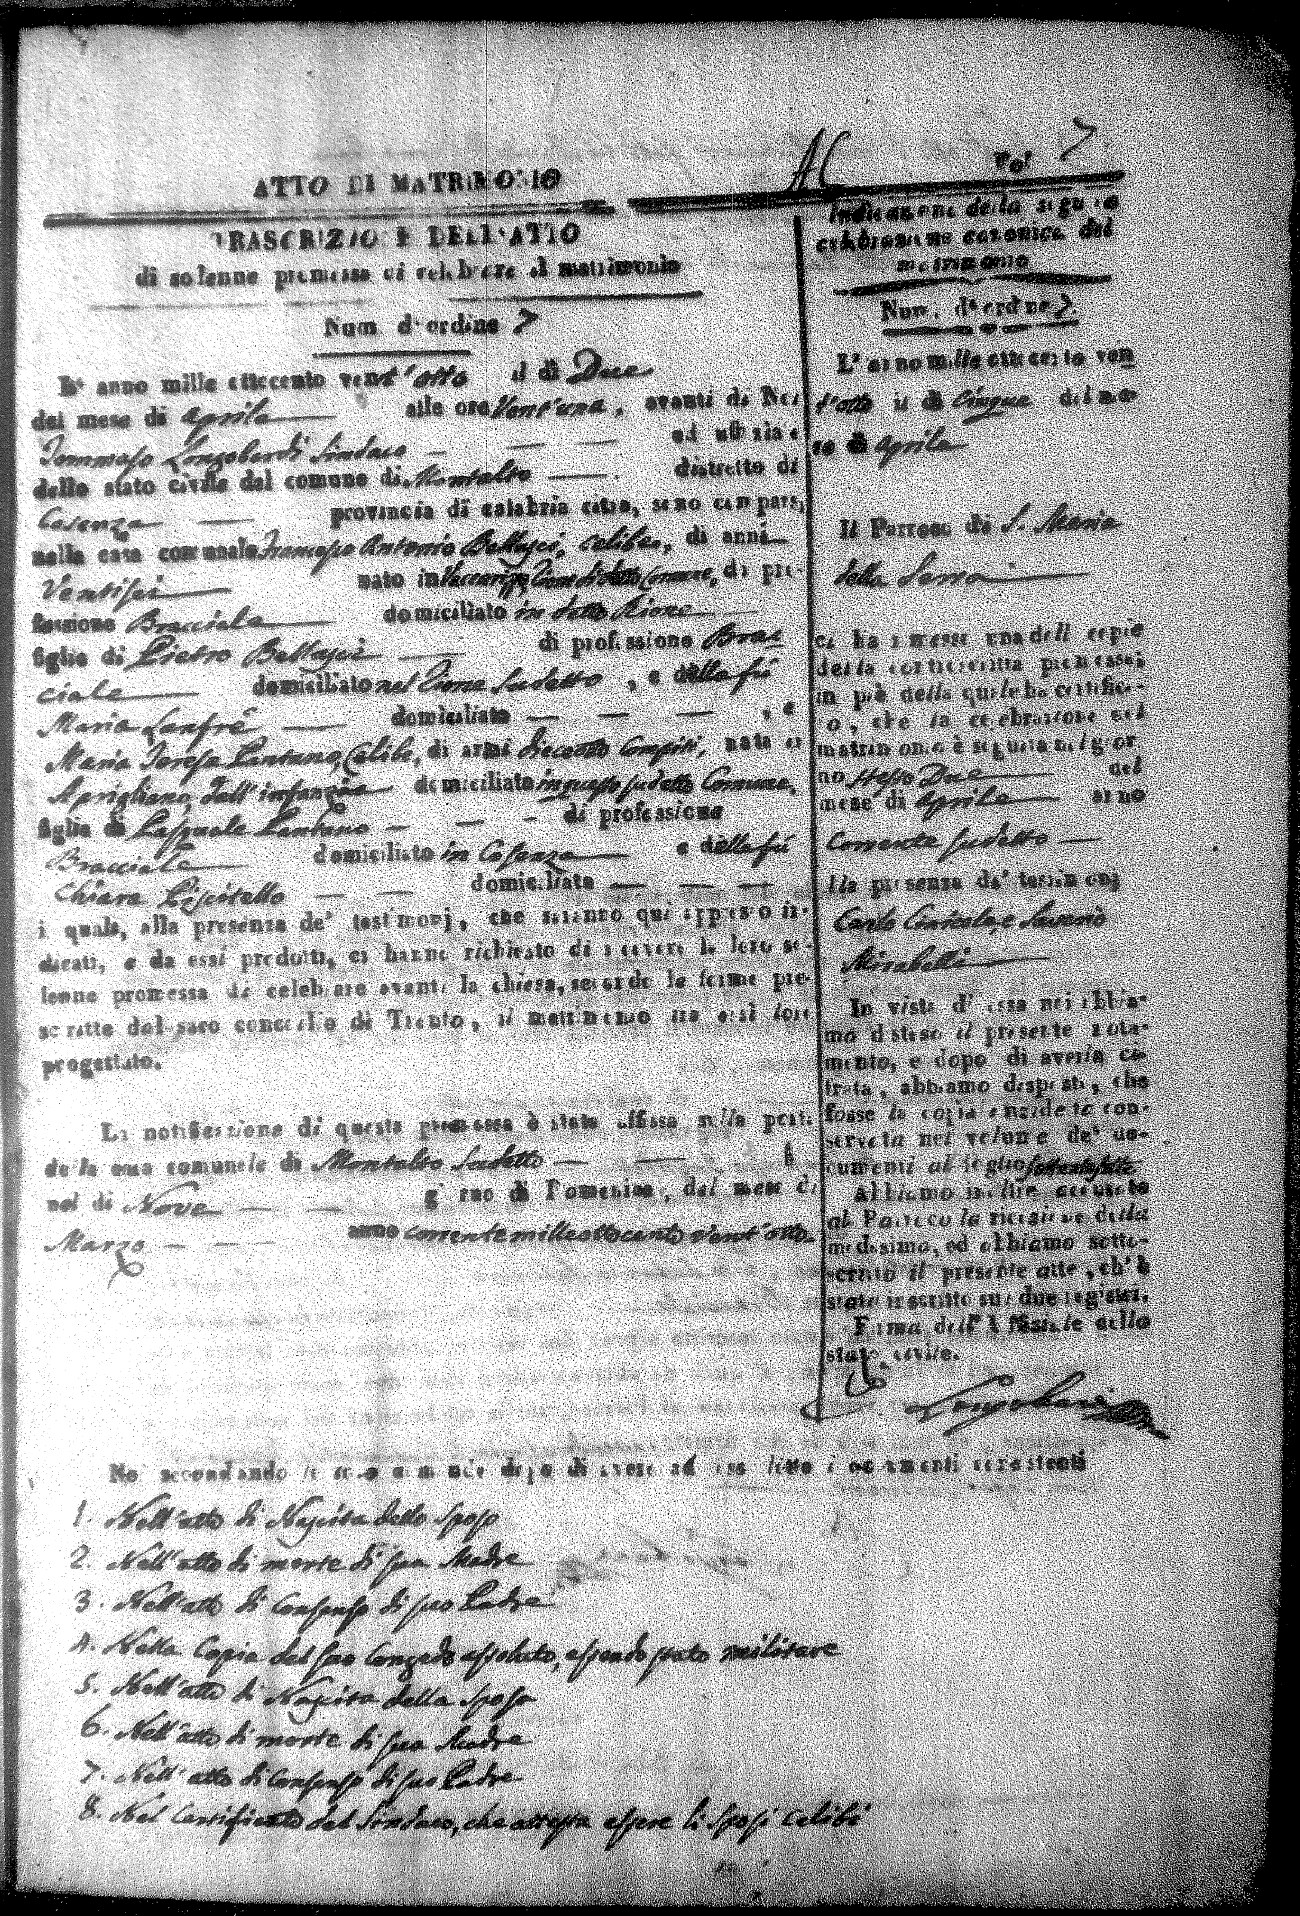 AC
Vol 7
ATTO DI MATRIMONIO
TRASCRIZIONE DELL'ATTO
di solenne promessa di celebrare il matrimonio
Num. d'ordine 7
L'anno mille ottocento vent'otto il dì Due
del mese di Aprile alle ore Vent'una, avanti di Noi
Tommaso Longobardi Sindaco ed uffiziale
dello stato civile del comune di Montalto distretto di
Cosenza provincia di calabria citra, sono comparsi
nella casa comunale Francesco Antonio Bellusci, celibe, di anni
Ventisei nato in Vaccarizzo Rione di detto Comune, di pro-
fessione Bracciale domiciliato in detto Rione
figlio di Pietro Bellusci di professione Brac
ciale domiciliato nel Rione sudetto, e della fù
Maria Lanfrè domiciliata , e
Maria Teresa Pantano, Celibe, di anni dieciotto compiti, nata in
Aprigliano, dall'infanzia domiciliata in questo sudetto Comune,
figlia di Pasquale Pantano di professione
Bracciale domiciliato in Cosenza e della fù
Chiara Piscitello domiciliata
i quali, alla presenza de' testimonj, che saranno qui appresso in-
dicati, e da essi prodotti, ci hanno richiesto di ricevere la loro so-
lenne promessa di celebrare avanti la chiesa, secondo le forme pre-
scritte dal sacro concilio di Trento, il matrimonio tra essi loro
progettato.
La notificazione di questa promessa è stata affissa sulla porta
della casa comunale di Montalto Sudetto
nel dì Nove giorno di Domenica, del mese di
Marzo anno corrente mille ottocento vent'otto
Indicazione della seguita
celebrazione canonica del
matrimonio
Num. d'ordine 7.
L'anno mille ottocento ven
t'otto il dì Cinque del me-
se di Aprile
Il Parroco di S. Maria
della Serra
ci ha rimesse una delle copie
della controscritta promessa;
in piè della quale ha certifica-
to, che la celebrazione del
matrimonio è seguita nel gior
no stesso Due del
mese di Aprile anno
Corrente sudetto
alla presenza de' testimonj
Carlo e Saverio
Mirabelli
In vista di essa noi abbia-
mo disteso il presente nota-
mento, e dopo di averla ci-
frata, abbiamo disposto, che
fosse la copia anzidetta con-
servata nel volume de' do-
cumenti al foglio
Abbiamo inoltre accusato
al Parroco la ricezione della
medesima, ed abbiamo sotto-
scritto il presente atto, ch'è
stato inscritto sui due registri.
Firma dell'Uffiziale dello
stato civile.
Longobardi
Noi secondando le dopo di avere ad essi letto i documenti consistenti
1. Nell'atto di Nascita dello Sposo
2. Nell'atto di morte di sua Madre
3. Nell'atto di Consenso di suo Padre
4. Nella Copia del suo Congedo assoluto, essendo stato militare
5. Nell'atto di Nascita della Sposa
6. Nell'atto di morte di sua Madre
7. Nell'atto di Consenso di suo Padre
8. Nel Certificato del Sindaco, che attesta essere li Sposi celibi